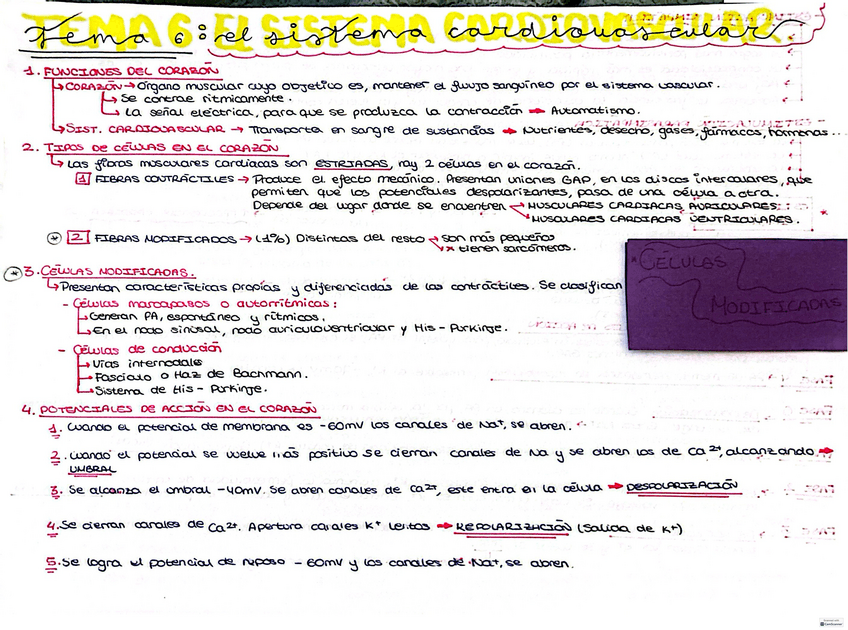 Tema 6: el sistema cardiovascular.
1. FUNCIONES DEL CORAZÓN
CORAZÓN → Órgano muscular cuyo objetivo es, mantener el flujo sanguíneo por el sistema vascular.
Se contrae ritmicamente.
La señal eléctrica, para que se produzca la contracción → Automatismo.
SIST. CARDIOVASCULAR → Transporta en sangre de sustancias → Nutrientes, desecho, gases, fármacos, hormonas...
2. TIPOS DE CÉLULAS EN EL CORAZÓN
Las fibras musculares cardiacas son ESTRIADAS, hay 2 células en el corazón.
1 FIBRAS CONTRÁCTILES → Produce el efecto mecánico. Presentan uniones GAP, en los discos intercalares, que
permiten que los potenciales despolarizantes, pasa de una célula a otra.
Depende del lugar donde se encuentren → MUSCULARES CARDIACAS AURICULARES.
MUSCULARES CARDIACAS VENTRICULARES. *
* 2 FIBRAS MODIFICADOS → (1%) Distintas del resto → son más pequeños
x tienen sarcómeros.
* CÉLULAS
MODIFICADAS
* 3. CÉLULAS MODIFICADAS.
Presentan características propias y diferenciadas de las contráctiles. Se clasifican
- Células marcapasos o autorrítmicas:
Generan PA, espontáneo y rítmicos.
En el nodo sinusal, nodo auriculoventricular y His - Purkinje.
- Células de conducción
Vías internodales
Fascículo o Haz de Bachmann.
Sistema de His - Purkinje.
4. POTENCIALES DE ACCIÓN EN EL CORAZÓN
1. Cuando el potencial de membrana es -60mV los canales de Na+, se abren.
2. Cuando el potencial se vuelve más positivo se cierran canales de Na y se abren los de Ca2+, alcanzando →
UMBRAL
3. Se alcanza el umbral -40mV. Se abren canales de Ca2+, este entra en la célula → DESPOLARIZACIÓN
4. Se cierran canales de Ca2+. Apertura canales K+ lentos → REPOLARIZACIÓN (Salida de K+)
5. Se logra el potencial de reposo -60mV y los canales de Na+, se abren.
CamScanner